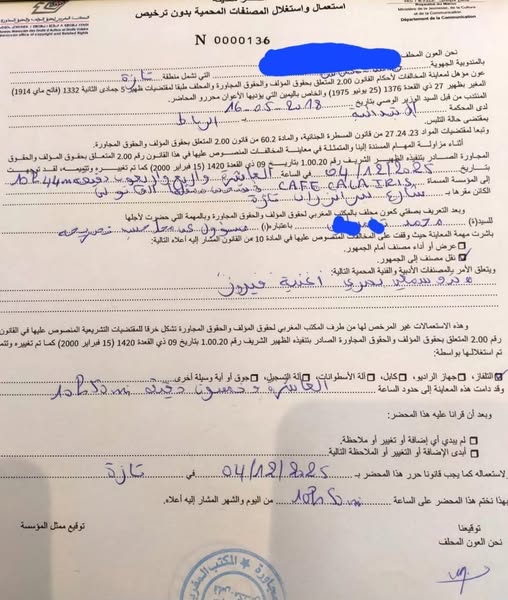 استعمال واستغلال المصنفات المحمية بدون ترخيص
Département de la Communication
N 0000136
نحن العون المحلف
بالمندوبية الجهوية
التي تشمل منطقة تازة
عون مؤهل لمعاينة المخالفات لأحكام القانون 2.00 المتعلق بحقوق المؤلف والحقوق المجاورة و محلف طبقا لمقتضيات ظهير 5 جمادى الثانية 1332 (فاتح ماي 1914)
المغير بظهير 27 ذي القعدة 1376 (25 يونيو 1975) والخاص باليمين التي يؤديها الأعوان محررو المحاضر.
المنتدب من قبل السيد الوزير الوصي بتاريخ 16-05-2018
لدى المحكمة الابتدائية ب الرباط
بمقتضى حالة التلبس
وتبعا لمقتضيات المواد 23، 24، 27 من قانون المسطرة الجنائية، والمادة 60.2 من قانون 2.00 المتعلق بحقوق المؤلف والحقوق المجاورة.
أثناء مزاولة المهام المسندة إلينا والمتمثلة في معاينة المخالفات المنصوص عليها في هذا القانون رقم 2.00 المتعلق بحقوق المؤلف والحقوق
المجاورة الصادر بتنفيذه الظهير الشريف رقم 1.00.20 بتاريخ 09 ذي القعدة 1420 (15 فبراير 2000) كما تم تغييره وتتميمه، لقد توجهت
بتاريخ 04/12/2025 في الساعة العاشرة وأربع وأربعون دقيقة 10h44mn
إلى المؤسسة المسماة CAFE CALA IRIS
الكائن مقرها ب شارع تازة
وبعد التعريف بصفتي كعون محلف بالمكتب المغربي لحقوق المؤلف والحقوق المجاورة وبالمهمة التي حضرت لأجلها
للسيد(ة) محمد باعتبار(ه) مسؤول حسب تصريحه
باشرت مهمة المعاينة حيث وقفت على المخالفات المنصوص عليها في المادة 10 من القانون المشار إليه أعلاه التالية:
عرض أو أداء مصنف أمام الجمهور.
نقل مصنف إلى الجمهور.
ويتعلق الأمر بالمصنفات الأدبية والفنية المحمية التالية:
سمعي بصري أغنية فيروز
هذه الاستعمالات غير المرخص لها من طرف المكتب المغربي لحقوق المؤلف والحقوق المجاورة تشكل خرقا للمقتضيات التشريعية المنصوص عليها في القانون
رقم 2.00 المتعلق بحقوق المؤلف والحقوق المجاورة الصادر بتنفيذه الظهير الشريف رقم 1.00.20 بتاريخ 09 ذي القعدة 1420 (15 فبراير 2000) كما تم تغييره
تم استغلالها بواسطة:
التلفاز، جهاز الراديو، كابل، آلة الأسطوانات، آلة التسجيل، جوق أو أية وسيلة أخرى
وقد دامت هذه المعاينة إلى حدود الساعة العاشرة وخمسون دقيقة 10h50mn
وبعد أن قرأنا عليه هذا المحضر:
لم يبدي أي إضافة أو تغيير أو ملاحظة.
أبدى الإضافة أو التغيير أو الملاحظة التالية
ولاستعماله كما يجب قانونا حرر هذا المحضر بـ تازة في 04/12/2025
بهذا تختم هذا المحضر على الساعة 10h50mn من اليوم والشهر المشار إليه أعلاه.
توقيعنا
توقيع ممثل المؤسسة
نحن العون المحلف